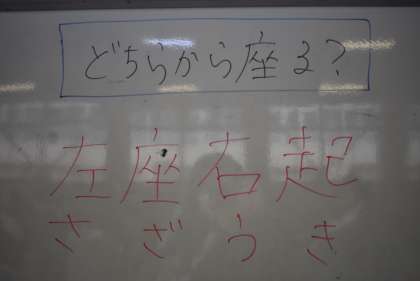 どちらから座る?
左座右起
さざうき